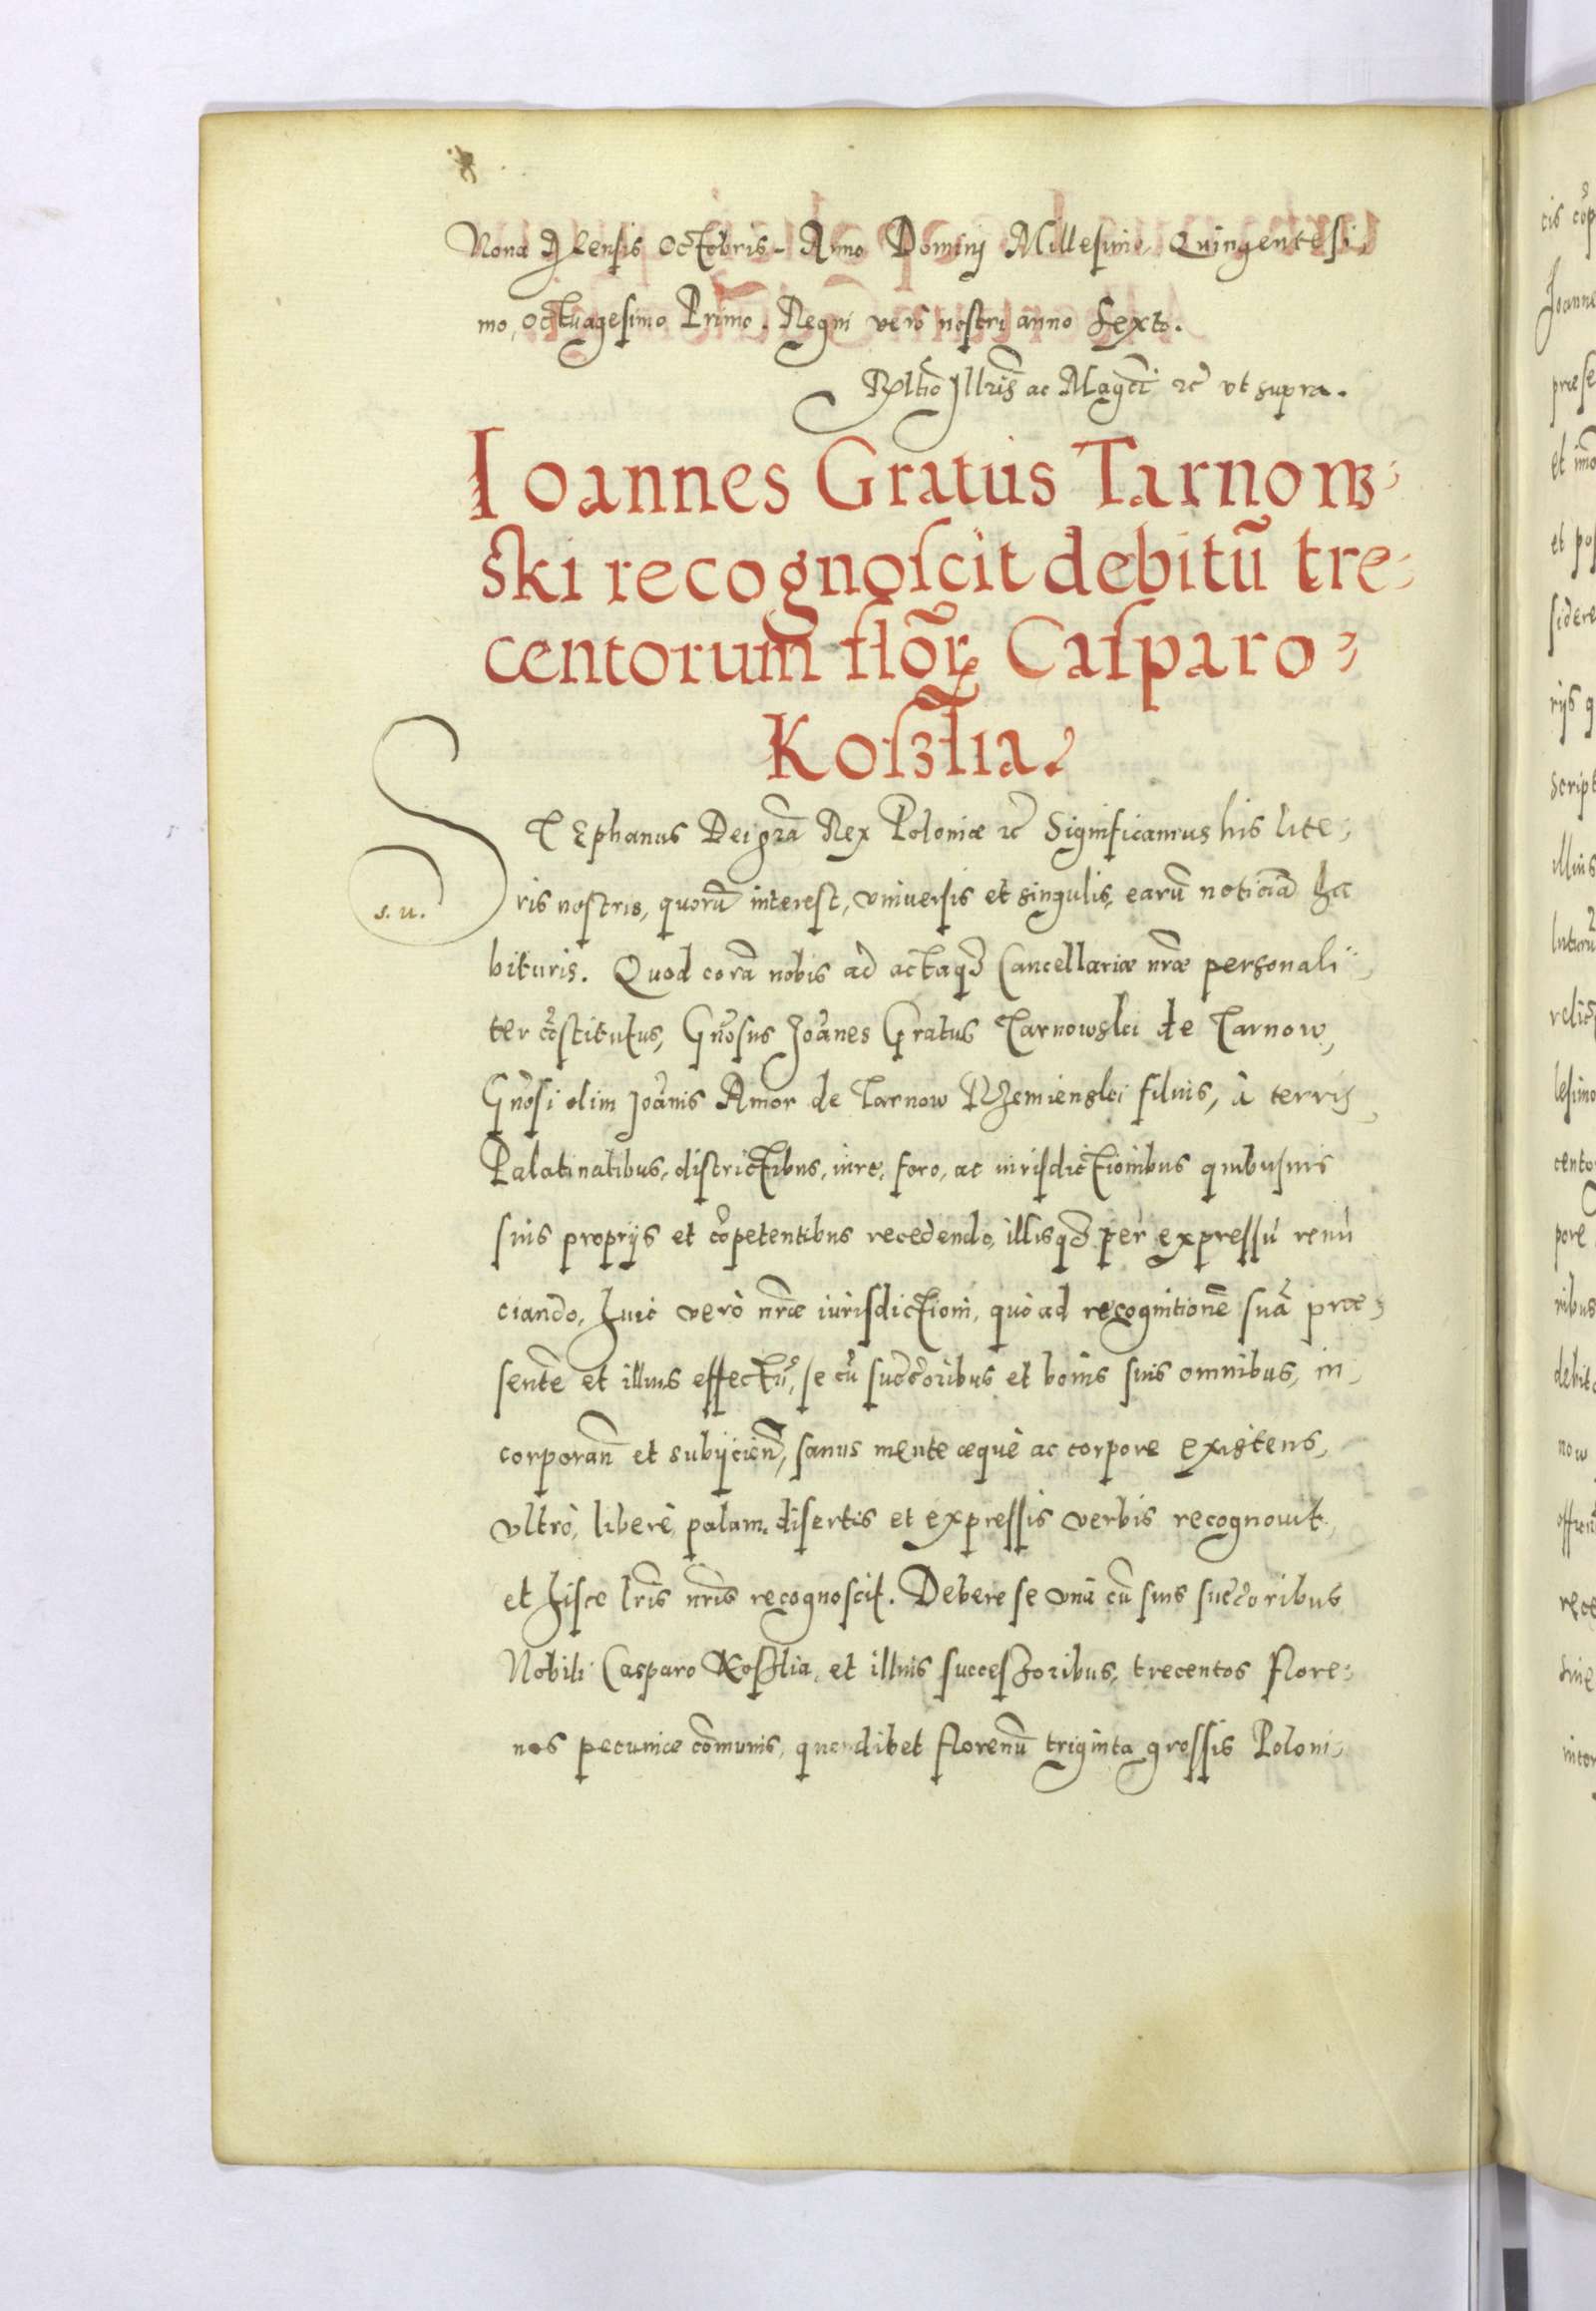 Nona Mensis Octobris Anno Domini Millesimo Quingentesi,
mo, Octuagesimo Primo. Regni verò nostri anno Sexto.
Rltio Illris ac Magci rc ut supra.
Ioannes Gratus Tarnow,
ski recognoscit debitũ tre,
centorum flor Casparo,
Koszlia.
STEphanus Dei gra Rex Poloniæ rc Significamus his lite,
s. u.
ris nostris, quorũ interest, universis et singulis, earũ noticiã ha
bituris. Quod corã nobis ad actaqз Cancellariæ nræ personali,
ter cõstitutus, Gnosus Joãnes Gratus Tarnowski de Tarnow,
Gnosi olim Joãnis Amor de Tarnow Rzemienski filius, à terris
Palatinatibus, districtibus, iure, foro, ac iurisdictionibus quibusuis
suis proprijs et cõpetentibus recedendo, illisqз per expressũ renũ
ciando, huic verò nræ iurisdictioni, quò ad recognitionẽ suã præ,
sentẽ et illius effectũ, se cũ succoribus et bonis suis omnibus, in,
corporan et subijcien, sanus mente æquè ac corpore existens,
ultrò, liberè, palam, disertis et expressis verbis recognovit,
et hisce lris nris recognoscit. Debere se unà cũ suis succoribus
Nobili Casparo Koszlia, et illius successoribus, trecentos flore,
nos pecuniæ cõmunis, quemlibet florenũ triginta grossis Poloni,